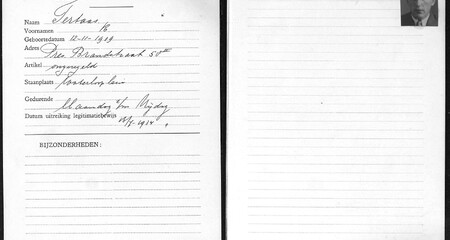 Naam Terboos
Voornamen H
Geboortedatum 12-11-1909
Adres Pres. Brandstraat 50
Artikel ongeregeld
Staanplaats
Gedurende Maandag t/m Vrijdag
Datum uitreiking legitimatiebewijs
BIJZONDERHEDEN: